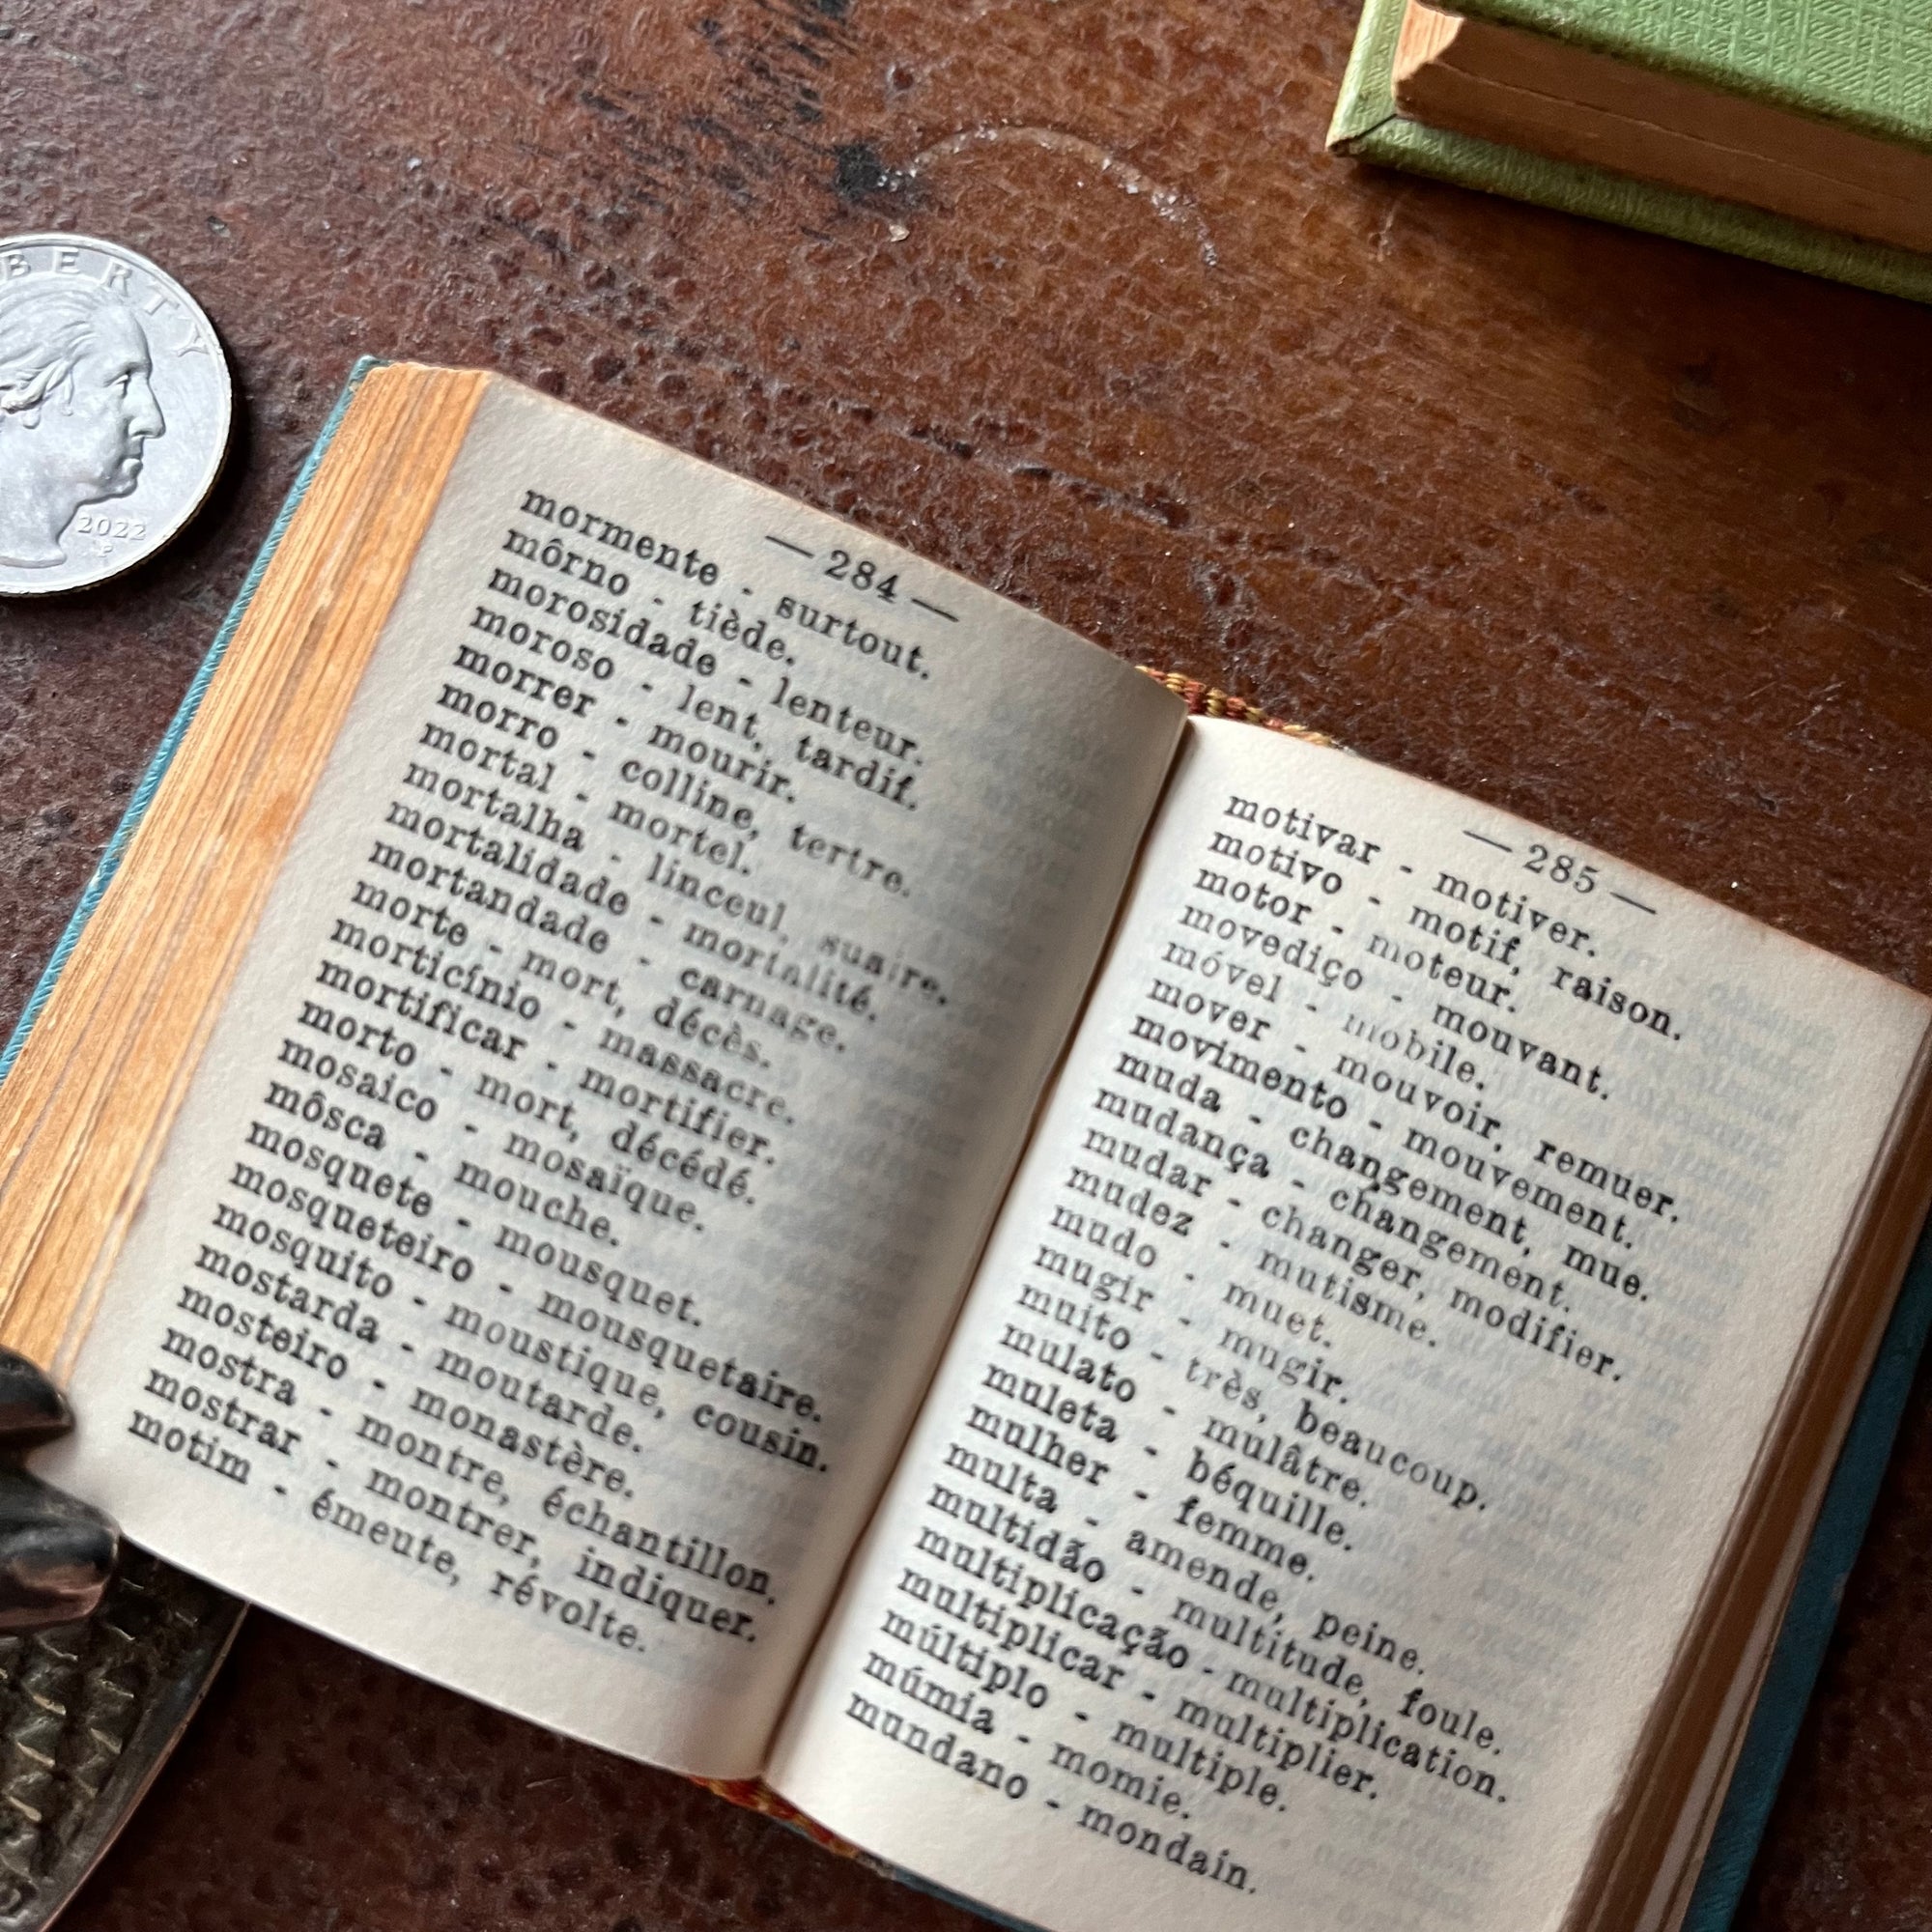 BERTY
2022
P
— 284 —
mormente - surtout.
môrno - tiède.
morosidade - lenteur.
moroso - lent, tardif.
morrer - mourir.
morro - colline, tertre.
mortal - mortel.
mortalha - linceul, suaire.
mortalidade - mortalité.
mortandade - carnage.
morte - mort, décès.
morticínio - massacre.
mortificar - mortifier.
morto - mort, décédé.
mosaico - mosaïque.
môsca - mouche.
mosquete - mousquet.
mosqueteiro - mousquetaire.
mosquito - moustique, cousin.
mostarda - moutarde.
mosteiro - monastère.
mostra - montre, échantillon.
mostrar - montrer, indiquer.
motim - émeute, révolte.
— 285 —
motivar - motiver.
motivo - motif, raison.
motor - moteur.
movediço - mouvant.
móvel - mobile.
mover - mouvoir, remuer.
movimento - mouvement.
muda - changement, mue.
mudança - changement.
mudar - changer, modifier.
mudez - mutisme.
mudo - muet.
mugir - mugir.
muito - très, beaucoup.
mulato - mulâtre.
muleta - béquille.
mulher - femme.
multa - amende, peine.
multidão - multitude, foule.
multiplicação - multiplication.
multiplicar - multiplier.
múltiplo - multiple.
múmia - momie.
mundano - mondain.